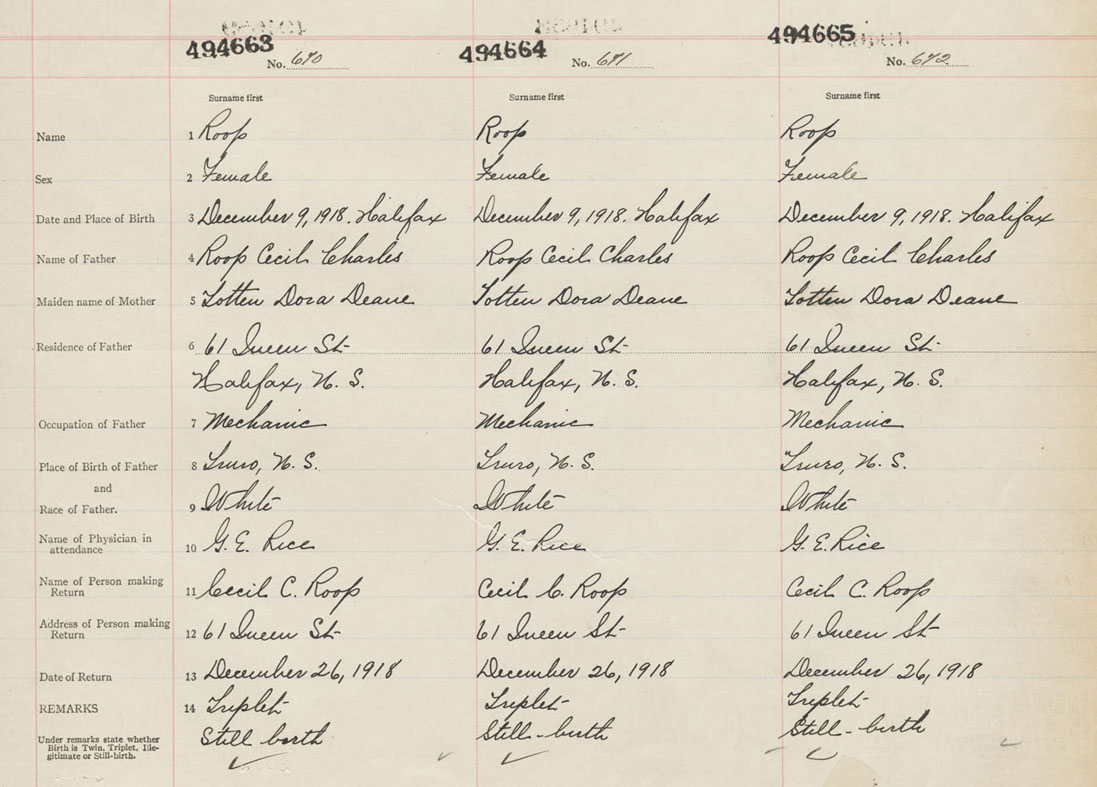 494663 494664 494665
No. 670 No. 671 No. 672
Surname first Surname first Surname first
Name 1 Roop Roop Roop
Sex 2 Female Female Female
Date and Place of Birth 3 December 9, 1918. Halifax December 9, 1918. Halifax December 9, 1918. Halifax
Name of Father 4 Roop Cecil Charles Roop Cecil Charles Roop Cecil Charles
Maiden name of Mother 5 Totten Dora Deane Totten Dora Deane Totten Dora Deane
Residence of Father 6 61 Queen St 61 Queen St 61 Queen St
Halifax, N. S. Halifax, N. S. Halifax, N. S.
Occupation of Father 7 Mechanic Mechanic Mechanic
Place of Birth of Father 8 Truro, N. S. Truro, N. S. Truro, N. S.
and
Race of Father. 9 White White White
Name of Physician in
attendance 10 G. E. Rice G. E. Rice G. E. Rice
Name of Person making
Return 11 Cecil C. Roop Cecil C. Roop Cecil C. Roop
Address of Person making
Return 12 61 Queen St 61 Queen St 61 Queen St
Date of Return 13 December 26, 1918 December 26, 1918 December 26, 1918
REMARKS 14 Triplet Triplet Triplet
Under remarks state whether
Birth is Twin, Triplet, Ille-
gitimate or Still-birth.
Still birth Still-birth Still-birth